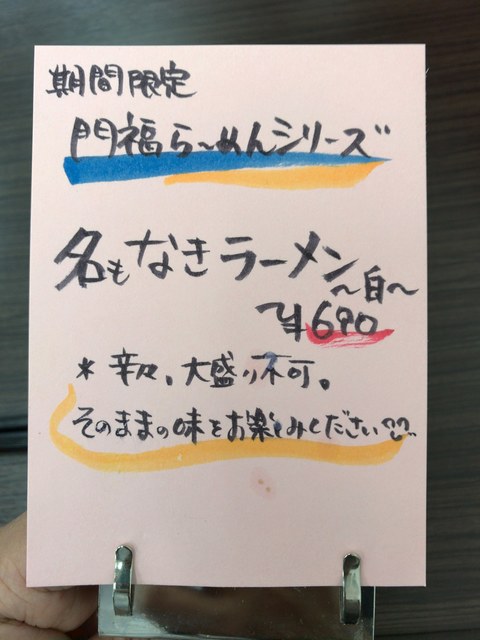 期間限定
門福らーめんシリーズ
名もなきラーメン
～白～
¥690
* 辛々、大盛り不可。
そのままの味をお楽しみください♡